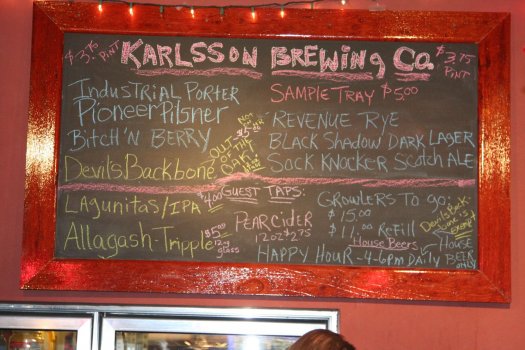 $3.75 PINT
KARLSSON BREWING CO.
$3.75 PINT
INDUSTRIAL PORTER
PIONEER PILSNER
BITCH'N BERRY
DEVIL'S BACKBONE
OUT OF THE OAK
SAMPLE TRAY $5.00
REVENUE RYE
BLACK SHADOW DARK LAGER
SOCK KNOCKER SCOTCH ALE
GUEST TAPS:
LAGUNITAS/IPA $4.00
ALLAGASH-TRIPPLE $5.00 12oz glass
PEAR CIDER
12 OZ $2.75
GROWLERS TO GO:
$15.00
$11.00 REFILL
House Beers
HAPPY HOUR - 4-6PM DAILY
HOUSE BEER ONLY